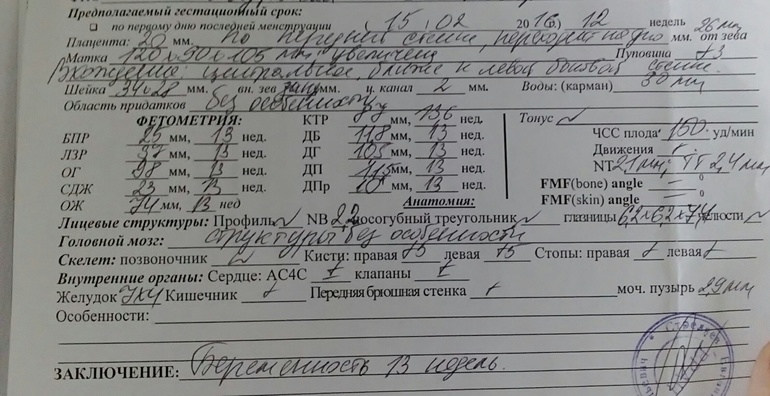 Предполагаемый гестационный срок:
по первому дню последней менструации 15.02 2016(г.) 12 недель
Плацента: 20 мм. по передней стенке, переходит на дно мм. от зева 26 мм
Матка 120х90х105 мм, увеличена Пуповина +3
Вхождение: центральное, ближе к левой боковой стенке.
Шейка 34х28 мм. вн. зев мм. ц. канал 2 мм. Воды: (карман) 30 мм
Область придатков без особенностей
ФЕТОМЕТРИЯ: КТР мм, 136 нед. Тонус ✓
БПР 25 мм, 13 нед. ДБ 118 мм, 13 нед. ЧСС плода 150 уд/мин
ЛЗР 37 мм, 13 нед. ДГ 105 мм, 13 нед. Движения
ОГ 98 мм, 13 нед. ДП 115 мм, 13 нед. NT 2,1 мм, IT 2,4 мм
СДЖ 23 мм, 13 нед. ДПр 10 мм, 13 нед. FMF(bone) angle — 0
ОЖ 74 мм, 13 нед FMF(skin) angle — 0
Анатомия:
Лицевые структуры: Профиль ✓ NB 2,2 носогубный треугольник ✓ глазницы 6,2х6,2х7,4 челюсти ✓
Головной мозг: структуры без особенности
Скелет: позвоночник Кисти: правая +5 левая +5 Стопы: правая + левая +
Внутренние органы: Сердце: АС4С + клапаны +
Желудок 7х4 Кишечник + Передняя брюшная стенка + моч. пузырь 2,9 мм
Особенности:
ЗАКЛЮЧЕНИЕ: Беременность 13 недель.